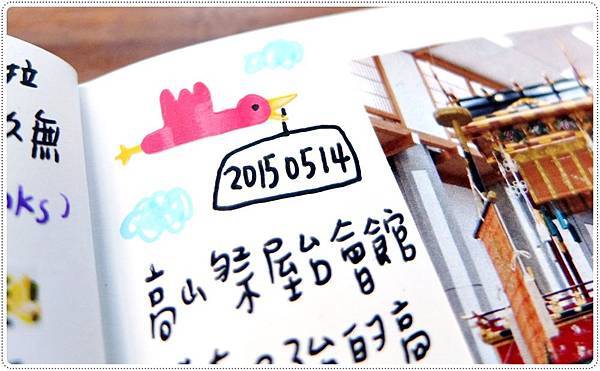 拉
無
ks)
20150514
高山祭屋台會館
的高